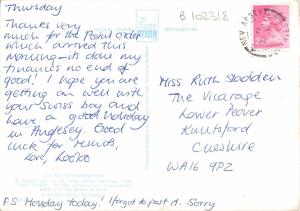 Thursday
Thanks very
much for the Postal order
which arrived this
morning - its done my
finances no end of
good! I hope you are
getting on well with
your Swiss boy and
have a good holiday
in Anglesey. Good
luck for results,
Love,
P.S. Monday today! I forgot to post it. Sorry
B 102318
Miss Ruth Sladden
The Vicarage
Lower Peover
Knutsford
Cheshire
WA16 9PZ